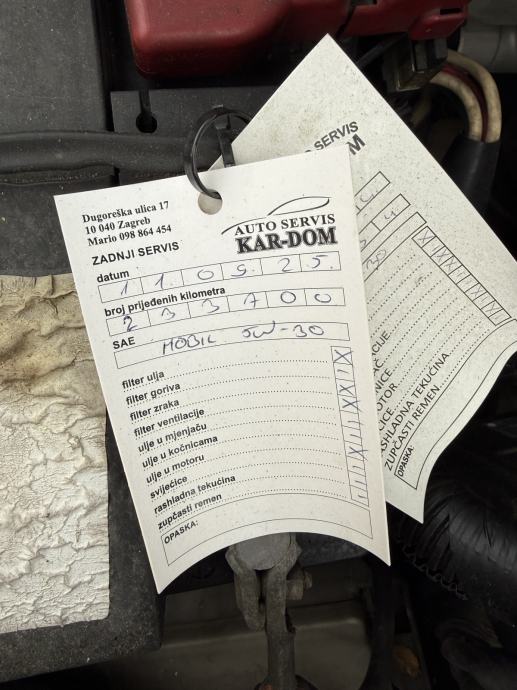 Dugoreška ulica 17
10 040 Zagreb
Mario 098 864 454
AUTO SERVIS
KAR-DOM
ZADNJI SERVIS
datum
11.09.25.
broj prijeđenih kilometra
233700
SAE
MOBIL 5W-30
filter ulja
filter goriva
filter zraka
filter ventilacije
ulje u mjenjaču
ulje u kočnicama
ulje u motoru
svijećice
rashladna tekućina
zupčasti remen
OPASKA:
SERVIS
OM
TOR
ASHLADNA TEKUĆINA
ZUPČASTI REMEN
OPASKA: